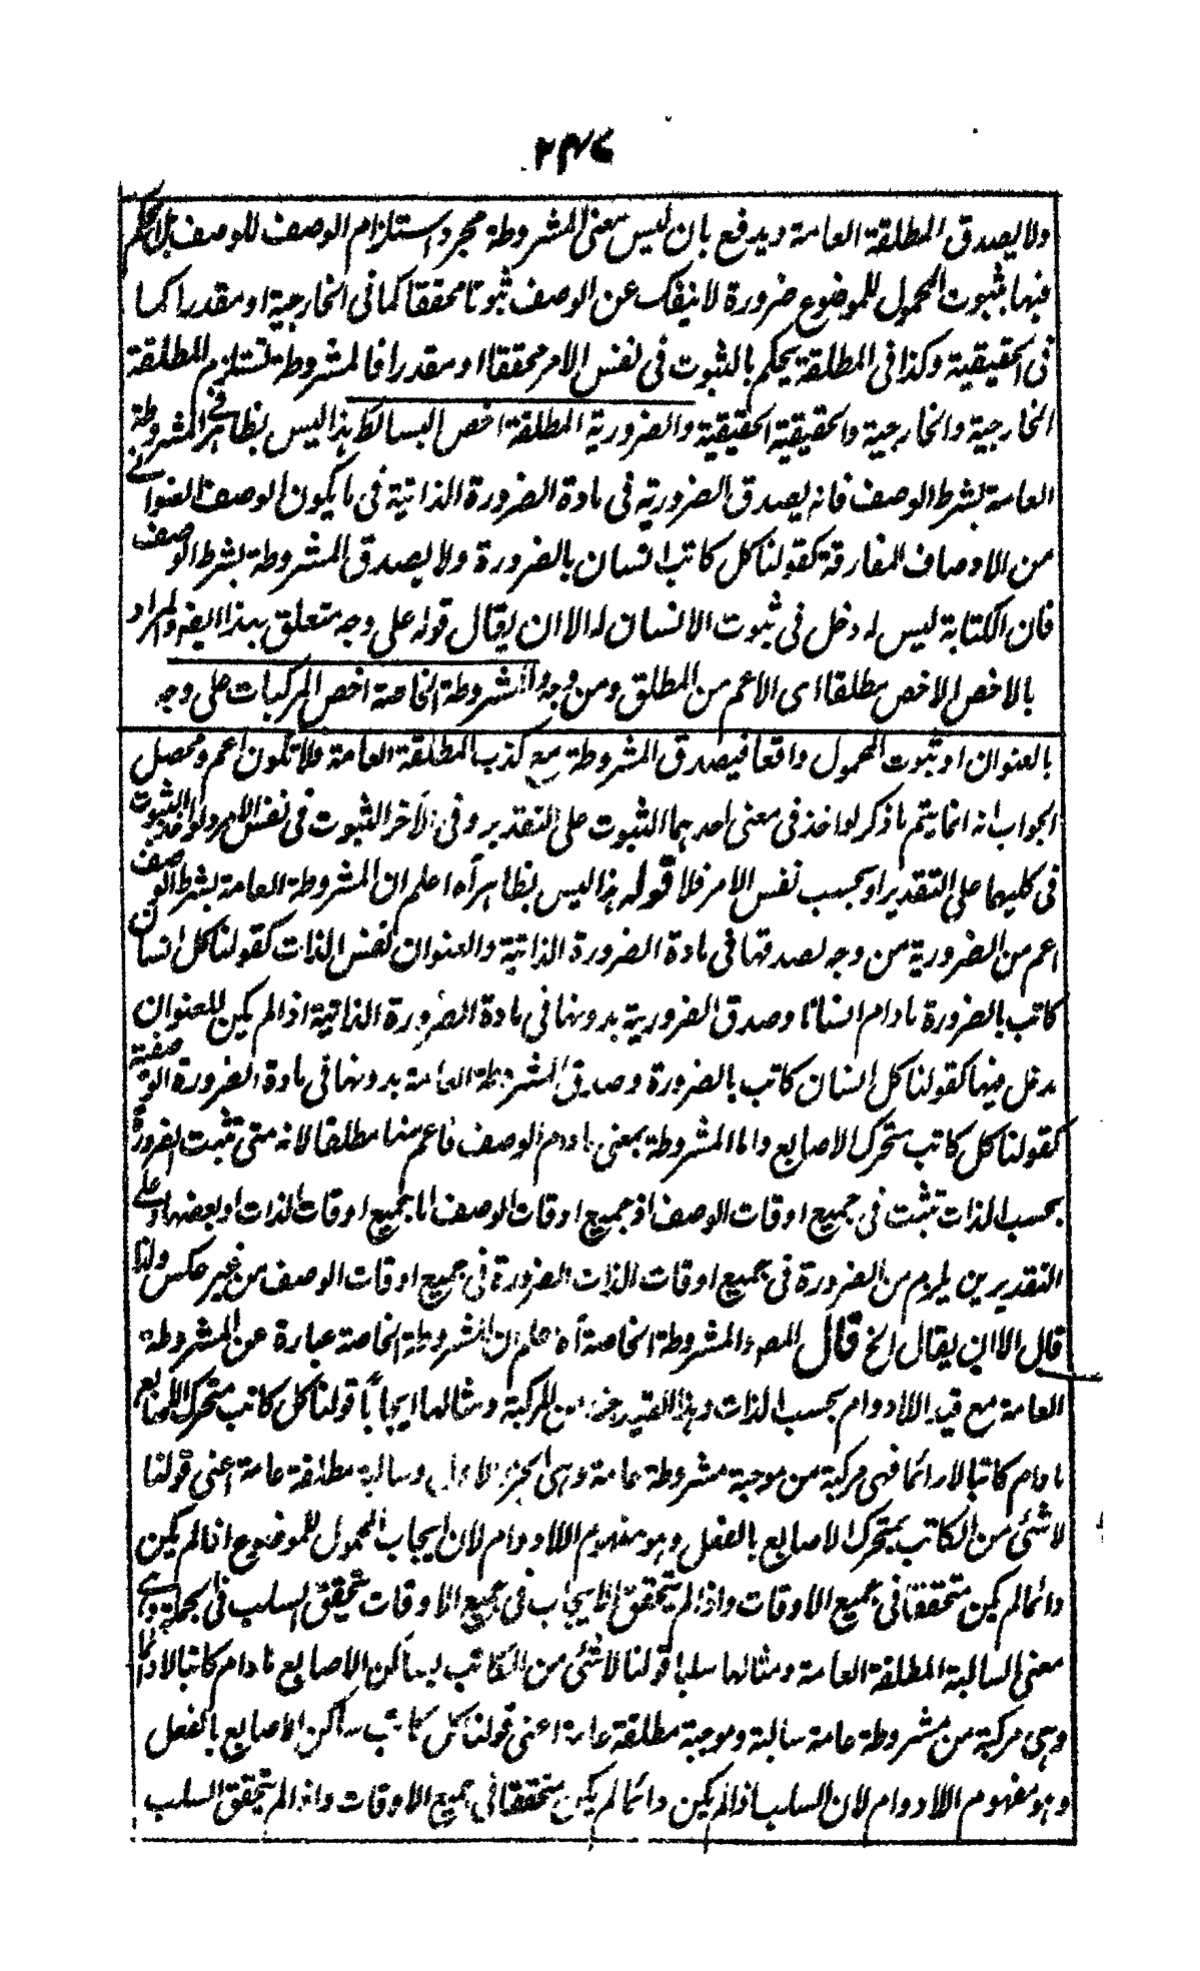 ٢٣٦
ولا يصدق المطلقة العامة ويدفع بان ليس معنى المشروطة مجرد استلزام الوصف للوصف بل الحكم
فيها بثبوت المحمول للموضوع ضرورة لا ينفك عن الوصف ثبوتا محققا كما فى الخارجية او مقدرا كما
فى الحقيقية وكذا فى المطلقة يحكم بالثبوت فى نفس الامر محققا او مقدرا فالمشروطة تستلزم المطلقة
الخارجية والخارجية والحقيقية الحقيقية والضرورية المطلقة اخص البسائط هذا ليس بظاهر فى المشروطة
العامة بشرط الوصف فانه يصدق الضرورية فى مادة الضرورة الذاتية فى ما يكون الوصف العنوانى
من الاوصاف المفارقة كقولنا كل كاتب انسان بالضرورة ولا يصدق المشروطة بشرط الوصف
فان الكتابة ليس له دخل فى ثبوت الانسان له الا ان يقال قوله على وجه متعلق بهذا ايضا والمراد
بالاخص الاخص مطلقا اى الاعم من المطلق ومن وجه والمشروطة الخاصة اخص المركبات على وجه
بالعنوان او ثبوت المحمول واقعا فيصدق المشروطة مع كذب المطلقة العامة فلا تكون اعم ومحصل
الجواب انه انما يتم ما ذكر لو اخذ فى معنى احدهما الثبوت على التقدير وفى الآخر الثبوت فى نفس الامر ولو اخذ الثبوت
فى كليهما على التقدير او بحسب نفس الامر فلا قوله هذا ليس بظاهر آه اعلم ان المشروطة العامة بشرط الوصف
اعم من الضرورية من وجه لصدقها فى مادة الضرورة الذاتية والعنوان نفس الذات كقولنا كل انسان
كاتب بالضرورة مادام انسانا وصدق الضرورية بدونها فى مادة الضرورة الذاتية اذا لم يكن للعنوان
دخل فيها كقولنا كل انسان كاتب بالضرورة وصدق المشروطة العامة بدونها فى مادة الضرورة الوصفية
كقولنا كل كاتب متحرك الاصابع واما المشروطة بمعنى مادام الوصف فاعم منها مطلقا لانه متى تثبت الضرورة
بحسب الذات تثبت فى جميع اوقات الوصف اذ جميع اوقات الوصف اما جميع اوقات الذات او بعضها وعلى
التقديرين يلزم من الضرورة فى جميع اوقات الذات الضرورة فى جميع اوقات الوصف من غير عكس ولذا
قال الا ان يقال الخ قال المص والمشروطة الخاصة آه اعلم ان المشروطة الخاصة عبارة عن المشروطة
العامة مع قيد اللادوام بحسب الذات وهذا القيد جزء من المركبة ومثالها ايجابًا قولنا كل كاتب متحرك الاصابع
مادام كاتبا لا دائما فهى مركبة من موجبة مشروطة عامة وهى الجزء الاول وسالبة مطلقة عامة اعنى قولنا
لا شئ من الكاتب بمتحرك الاصابع بالفعل وهو مفهوم اللادوام لان ايجاب المحمول للموضوع اذا لم يكن
دائما لم يكن متحققا فى جميع الاوقات واذا لم يتحقق الايجاب فى جميع الاوقات تحقق السلب فى الجملة وهى
معنى السالبة المطلقة العامة ومثالها سلبا قولنا لا شئ من الكاتب بساكن الاصابع مادام كاتبا لا دائما
وهى مركبة من مشروطة عامة سالبة وموجبة مطلقة عامة اعنى قولنا كل كاتب ساكن الاصابع بالفعل
وهو مفهوم اللادوام لان السلب اذا لم يكن دائما لم يكن متحققا فى جميع الاوقات واذا لم يتحقق السلب